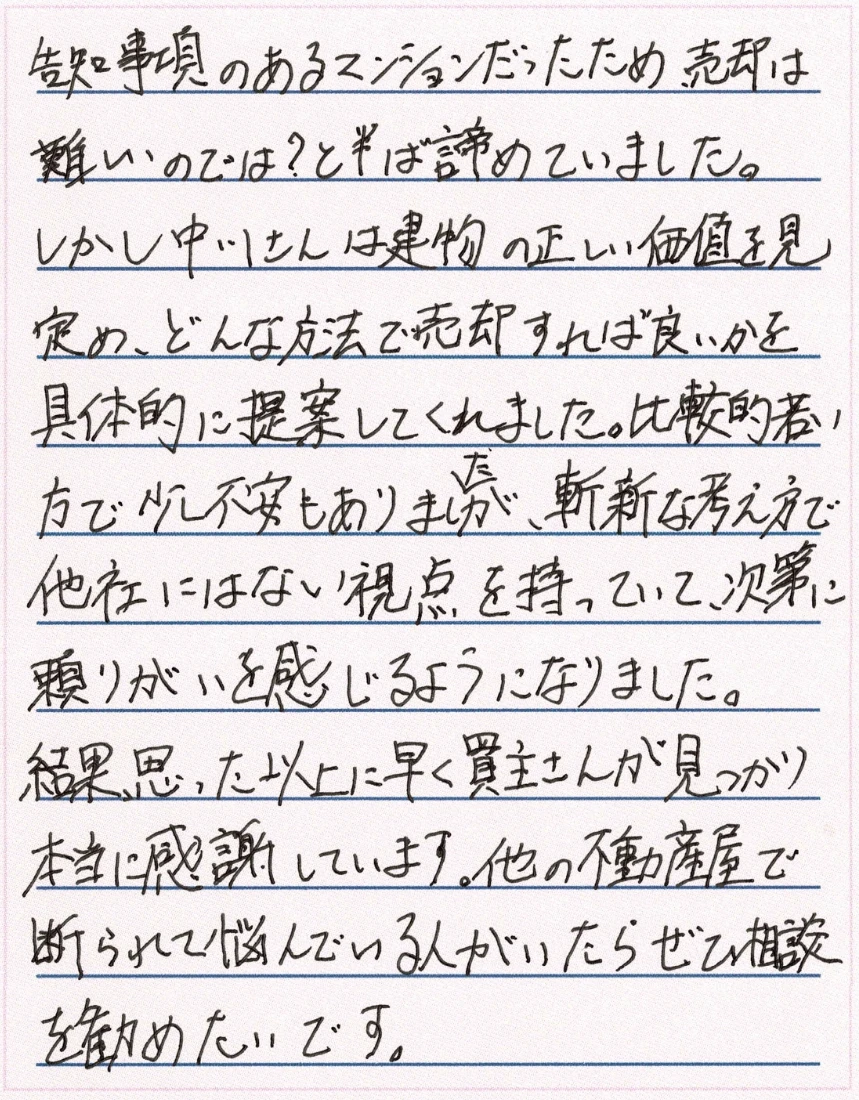 告知事項のあるマンションだったため売却は
難しいのでは?と半ば諦めていました。
しかし中川さんは建物の正しい価値を見
定め、どんな方法で売却すれば良いかを
具体的に提案してくれました。比較的若い
方で少し不安もありましたが、斬新な考え方で
他社にはない視点を持っていて、次第に
頼りがいを感じるようになりました。
結果、思った以上に早く買主さんが見つかり
本当に感謝しています。他の不動産屋で
断られて悩んでいる人がいたらぜひ相談
を勧めたいです。